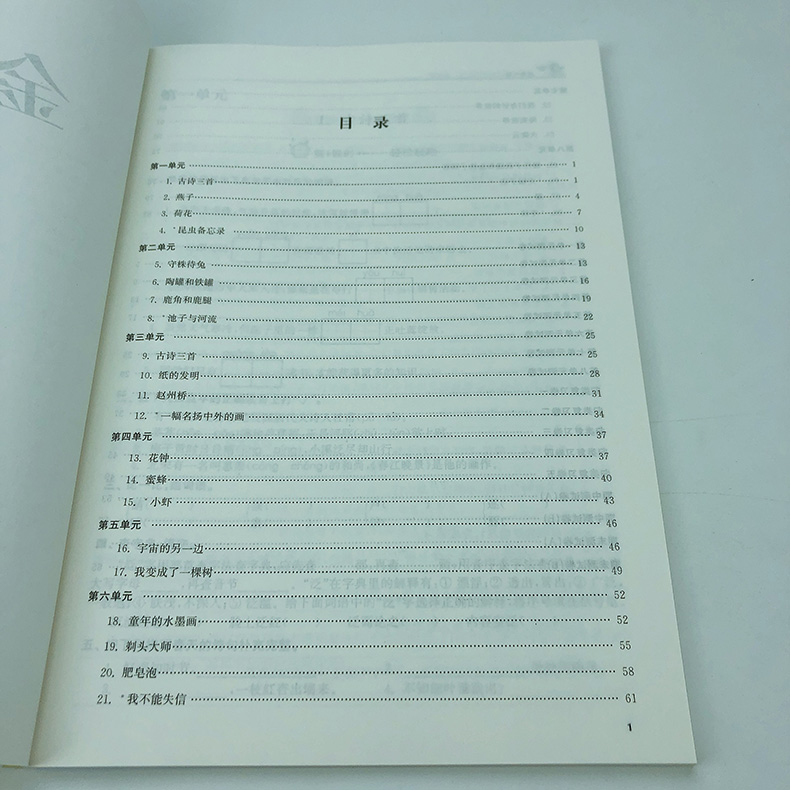 目 录
第一单元 1
1. 古诗三首 1
2. 燕子 4
3. 荷花 7
4. *昆虫备忘录 10
第二单元 13
5. 守株待兔 13
6. 陶罐和铁罐 16
7. 鹿角和鹿腿 19
8. *池子与河流 22
第三单元 25
9. 古诗三首 25
10. 纸的发明 28
11. 赵州桥 31
12. *一幅名扬中外的画 34
第四单元 37
13. 花钟 37
14. 蜜蜂 40
15. *小虾 43
第五单元 46
16. 宇宙的另一边 46
17. 我变成了一棵树 49
第六单元 52
18. 童年的水墨画 52
19. 剃头大师 55
20. 肥皂泡 58
21. *我不能失信 61
1